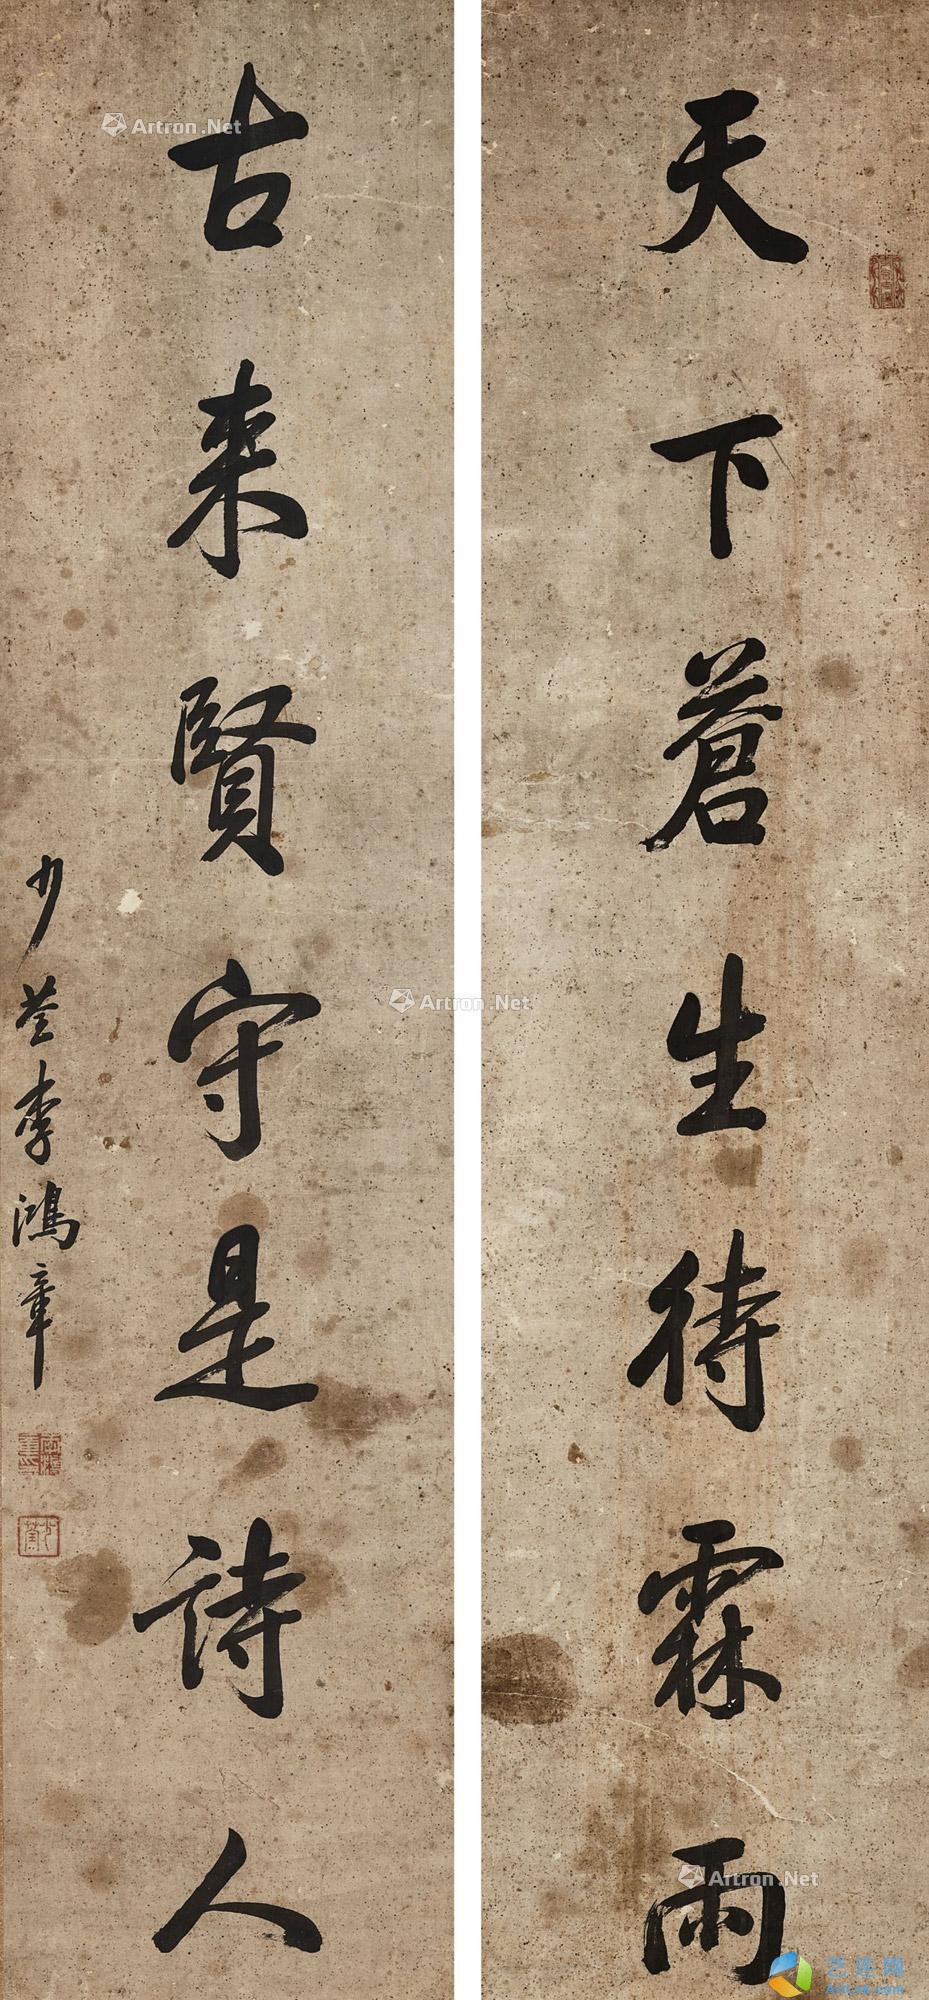 天下蒼生待霖雨
古来賢守是詩人
少荃李鴻章
Artron.Net
Artron.Net
Artron.Net